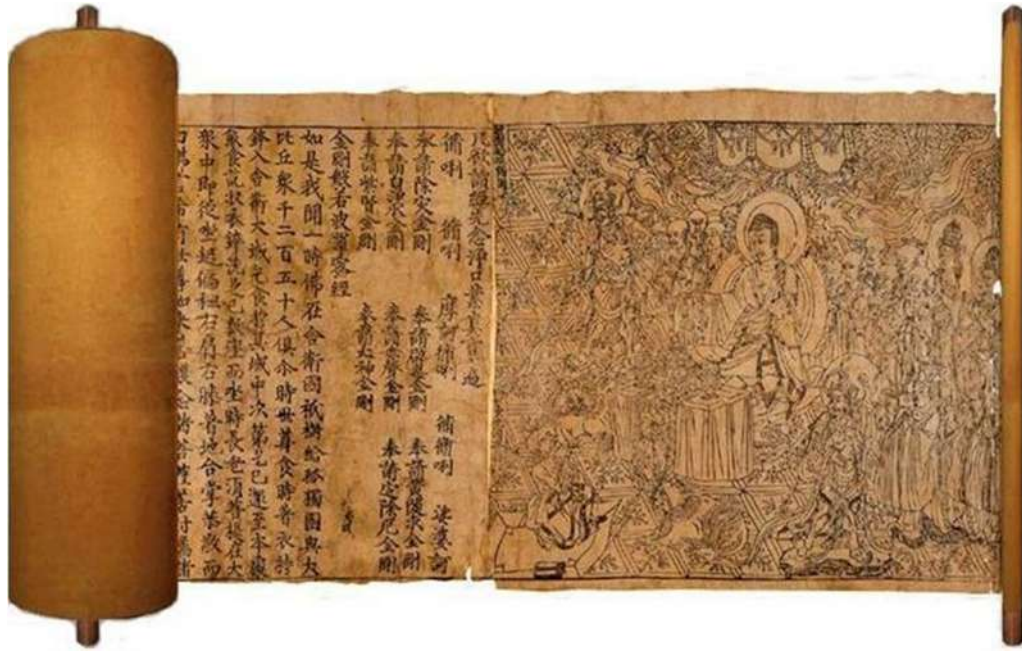 凡欲讀經先念淨口業真言一遍
脩唎 脩唎 摩訶脩唎 脩脩唎 娑婆訶
奉請除災金剛 奉請辟毒金剛 奉請黃隨求金剛
奉請白淨水金剛 奉請赤聲金剛 奉請定除厄金剛
奉請紫賢金剛 奉請大神金剛
金剛般若波羅蜜經
如是我聞一時佛在舍衛國祇樹給孤獨園與大
比丘衆千二百五十人俱尒時世尊食時著衣持
鉢入舍衛大城乞食於其城中次第乞已還至本處
飯食訖收衣鉢洗足已敷座而坐時長老須菩提在大
衆中即從坐起偏袒右肩右膝著地合掌恭敬而